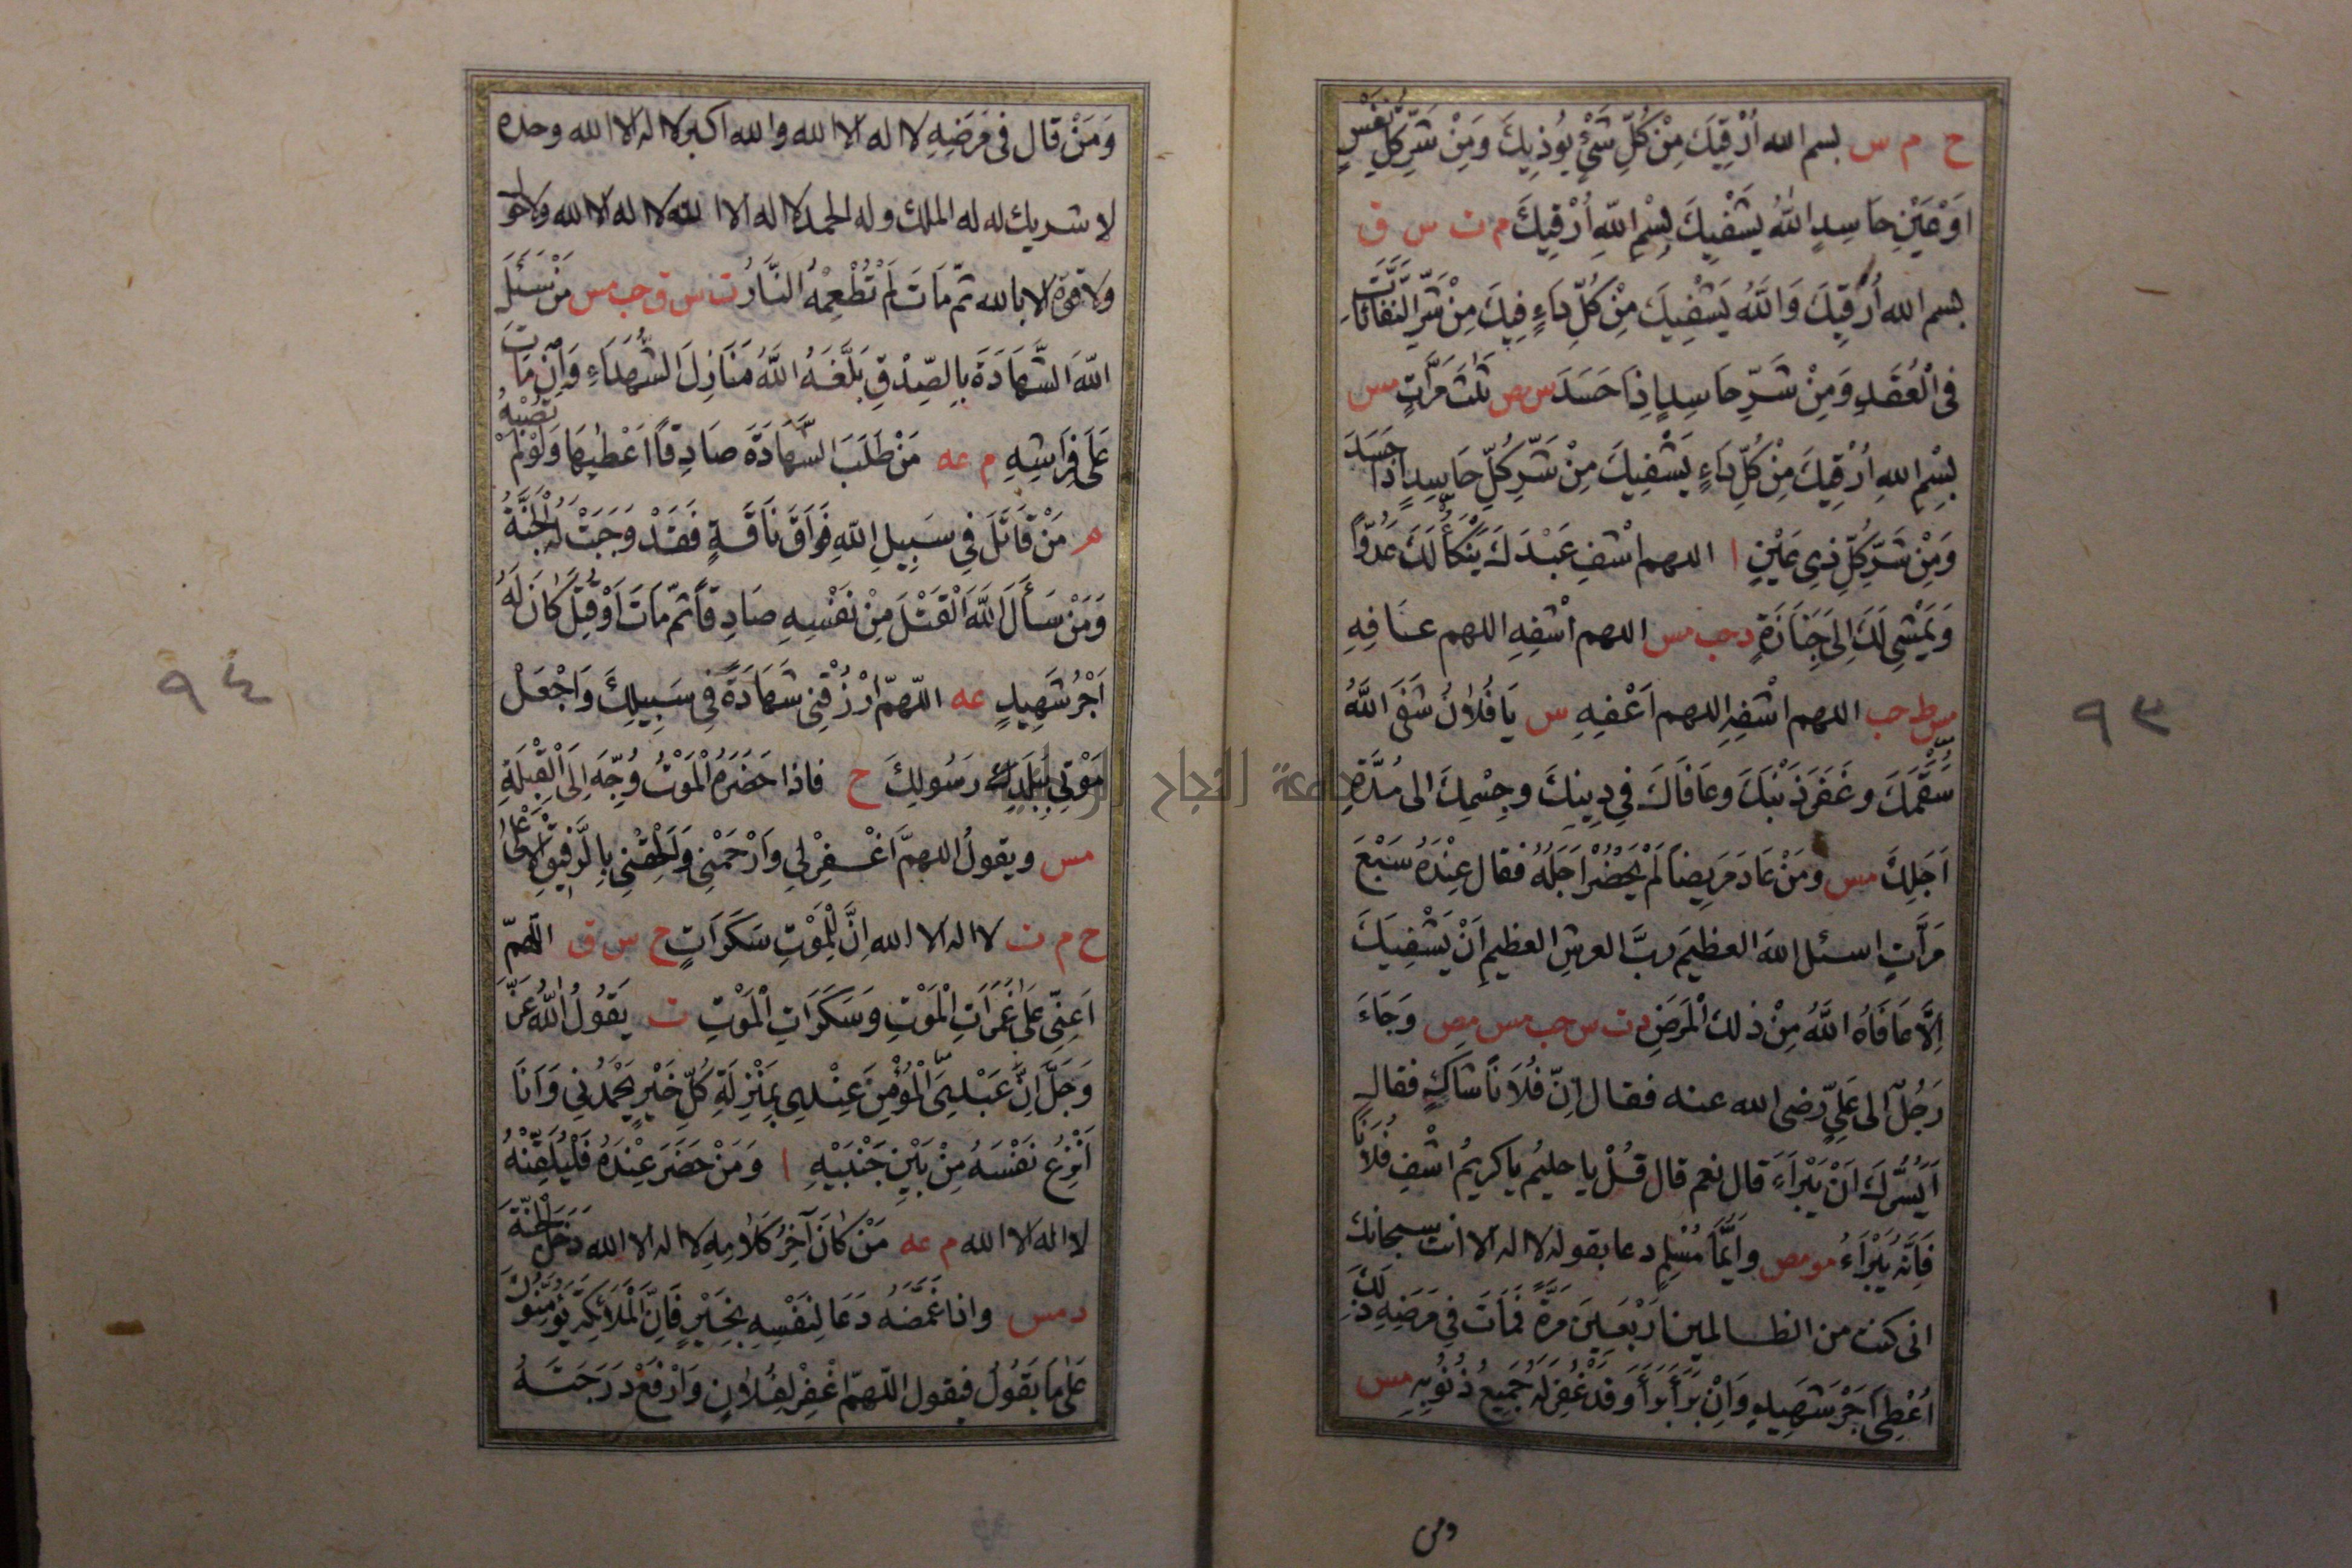 ح م س بسم الله اَرْقِيكَ مِنْ كُلِّ شَيْءٍ يُوذِيكَ وَمِنْ شَرِّ كُلِّ نَفْسٍ
اَوْ عَيْنِ حَاسِدٍ اللهُ يَشْفِيكَ بِسْمِ اللهِ اَرْقِيكَ م ت س ق
بسم الله اَرْقِيكَ وَاللهُ يَشْفِيكَ مِنْ كُلِّ دَاءٍ فِيكَ مِنْ شَرِّ النَّفَّاثَاتِ
فِي الْعُقَدِ وَمِنْ شَرِّ حَاسِدٍ اِذَا حَسَدَ س مص ثَلٰثَ مَرَّاتٍ مس
بِسْمِ اللهِ اَرْقِيكَ مِنْ كُلِّ دَاءٍ يَشْفِيكَ مِنْ شَرِّ كُلِّ حَاسِدٍ اِذَا حَسَدَ
وَمِنْ شَرِّ كُلِّ ذِي عَيْنٍ ا اللهم اشْفِ عَبْدَكَ يَنْكَأُ لَكَ عَدُوًّا
وَيَمْشِي لَكَ اِلَى جَنَازَةٍ د حب مس اللهم اشْفِهِ اللهم عَافِهِ
مس ط حب اللهم اشْفِهِ اللهم اَعْفِهِ س يَا فُلَانُ شَفَى اللهُ
سَقَمَكَ وَغَفَرَ ذَنْبَكَ وعَافَاكَ فِي دِينِكَ وجِسْمِكَ الى مُدَّةِ
اَجَلِكَ مس ومَنْ عَادَ مَرِيضًا لَمْ يَحْضُرْ اَجَلُهُ فقال عِنْدَهُ سَبْعَ
مَرَّاتٍ اسئل اللهَ العظيمَ ربَّ العرشِ العظيمِ اَنْ يَشْفِيَكَ
اِلَّا عَافَاهُ اللهُ مِنْ ذلك الْمَرَضِ د ت س حب مس مص وَجَاءَ
رَجُلٌ اِلى عَلِيٍّ رضى الله عنه فقال اِنَّ فُلَانًا شَاكٍ فقال
اَيَسُرُّكَ اَنْ يَبْرَاَ قال نعم قال قُلْ يا حليمُ يا كريمُ اشْفِ فُلَانًا
فَاِنَّهُ يَبْرَاُ مو مص وَاَيُّمَا مُسْلِمٍ دعا بقوله لا اله الا انت سبحانك
انى كنت من الظالمين اَرْبَعِينَ مَرَّةً فَمَاتَ فِي مَرَضِهِ ذٰلِكَ
اُعْطِيَ اَجْرَ شَهِيدٍ وَاِنْ بَرَأَ بَرَأَ وَقَدْ غُفِرَ لَهُ جَمِيعُ ذُنُوبِهِ مس
ومن
٩٣
وَمَنْ قال فى مَرَضِهِ لا اله الا الله والله اكبر لا اله الا الله وحده
لا شريك له له الملك وله الحمد لا اله الا الله لا اله الا الله ولا حول
ولا قوة الا بالله ثم مَاتَ لَمْ تُطْعِمْهُ النَّارُ ت س ق حب مس مَنْ سَئَلَ
اللهَ الشَّهَادَةَ بِالصِّدْقِ بَلَّغَهُ اللهُ مَنَازِلَ الشُّهَدَاءِ وَاِنْ مَاتَ
عَلَى فِرَاشِهِ م عه مَنْ طَلَبَ الشَّهَادَةَ صَادِقًا اُعْطِيَهَا وَلَوْ لَمْ تُصِبْهُ
م مَنْ قَاتَلَ فِي سَبِيلِ اللهِ فَوَاقَ نَاقَةٍ فَقَدْ وَجَبَتْ لَهُ الْجَنَّةُ
وَمَنْ سَأَلَ اللهَ الْقَتْلَ مِنْ نَفْسِهِ صَادِقًا ثُمَّ مَاتَ اَوْ قُتِلَ كَانَ لَهُ
اَجْرُ شَهِيدٍ عه اللّهمّ ارْزُقْنِي شَهَادَةً فِي سَبِيلِكَ وَاجْعَلْ
مَوْتِي بِبَلَدِ رَسُولِكَ ح فاذا حَضَرَهُ الْمَوْتُ وُجِّهَ اِلَى الْقِبْلَةِ
مس ويقولُ اللهمَّ اغْفِرْ لِي وَارْحَمْنِي وَاَلْحِقْنِي بِالرَّفِيقِ الْاَعْلَى
خ م ت لا اله الا الله اِنَّ لِلْمَوْتِ سَكَرَاتٍ خ س ق اللّهمّ
اَعِنِّي عَلَى غَمَرَاتِ الْمَوْتِ وَسَكَرَاتِ الْمَوْتِ ت يَقُولُ اللهُ عَزَّ
وَجَلَّ اِنَّ عَبْدِيَ الْمُؤْمِنَ عِنْدِي بِمَنْزِلَةِ كُلِّ خَيْرٍ يَحْمَدُنِي وَاَنَا
اَنْزِعُ نَفْسَهُ مِنْ بَيْنِ جَنْبَيْهِ ا وَمَنْ حَضَرَ عِنْدَهُ فَلْيُلَقِّنْهُ
لا اله الا الله م عه مَنْ كَانَ آخِرُ كَلَامِهِ لا اله الا الله دَخَلَ الْجَنَّةَ
د مس واذا غَمَّضَهُ دَعَا لِنَفْسِهِ بِخَيْرٍ فَاِنَّ الْمَلَائِكَةَ يُؤَمِّنُونَ
عَلَى مَا يَقُولُ فيقول اللّهمّ اغْفِرْ لِفُلَانٍ وَارْفَعْ دَرَجَتَهُ
٩٤
جامعة النجاح الوطنية